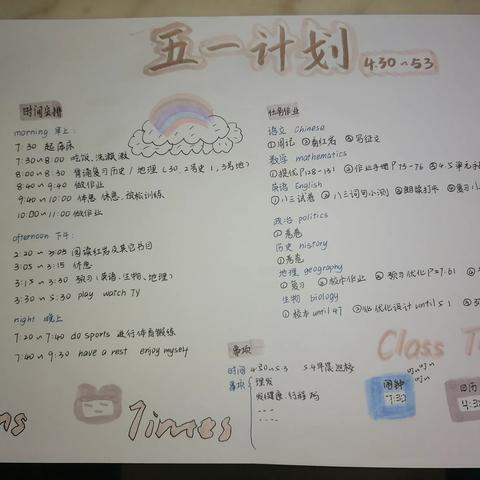 五一计划
4.30~5.3
时间安排
morning 早上:
7:30 起床
7:30~8:00 吃饭、洗漱
8:00~8:30 背诵复习历史/地理(30、2号史1、3号地)
8:40~9:40 做作业
9:40~10:00 休息
10:00~11:00 做作业
afternoon 下午:
2:20~3:05 阅读红岩及其它书目
3:05~3:15 休息
3:15~3:30 预习(英语、生物、地理)
3:30~5:30 play watch TV
night 晚上
7:20~7:40 do sports 进行体育锻炼
7:40~9:30 have a rest enjoy myself
作业
语文 Chinese
①周记 ②看红岩 ③写征文
数学 mathematics
①提优P128-131 ②作业手册P75-76
英语 English
①八三试卷 ②八三词句小测 ③朗读打卡 ④复习
政治 politics
①卷卷
历史 history
①卷卷
地理 geography
①复习 ②校本作业 ③预习优化P57.61
生物 biology
①校本until 47 ②优化设计until 51
事项
时间 4.30~5.3 5.4早晨返校
事项 理发
Class T
闹钟
7:30
日历
4:3
ns
Times